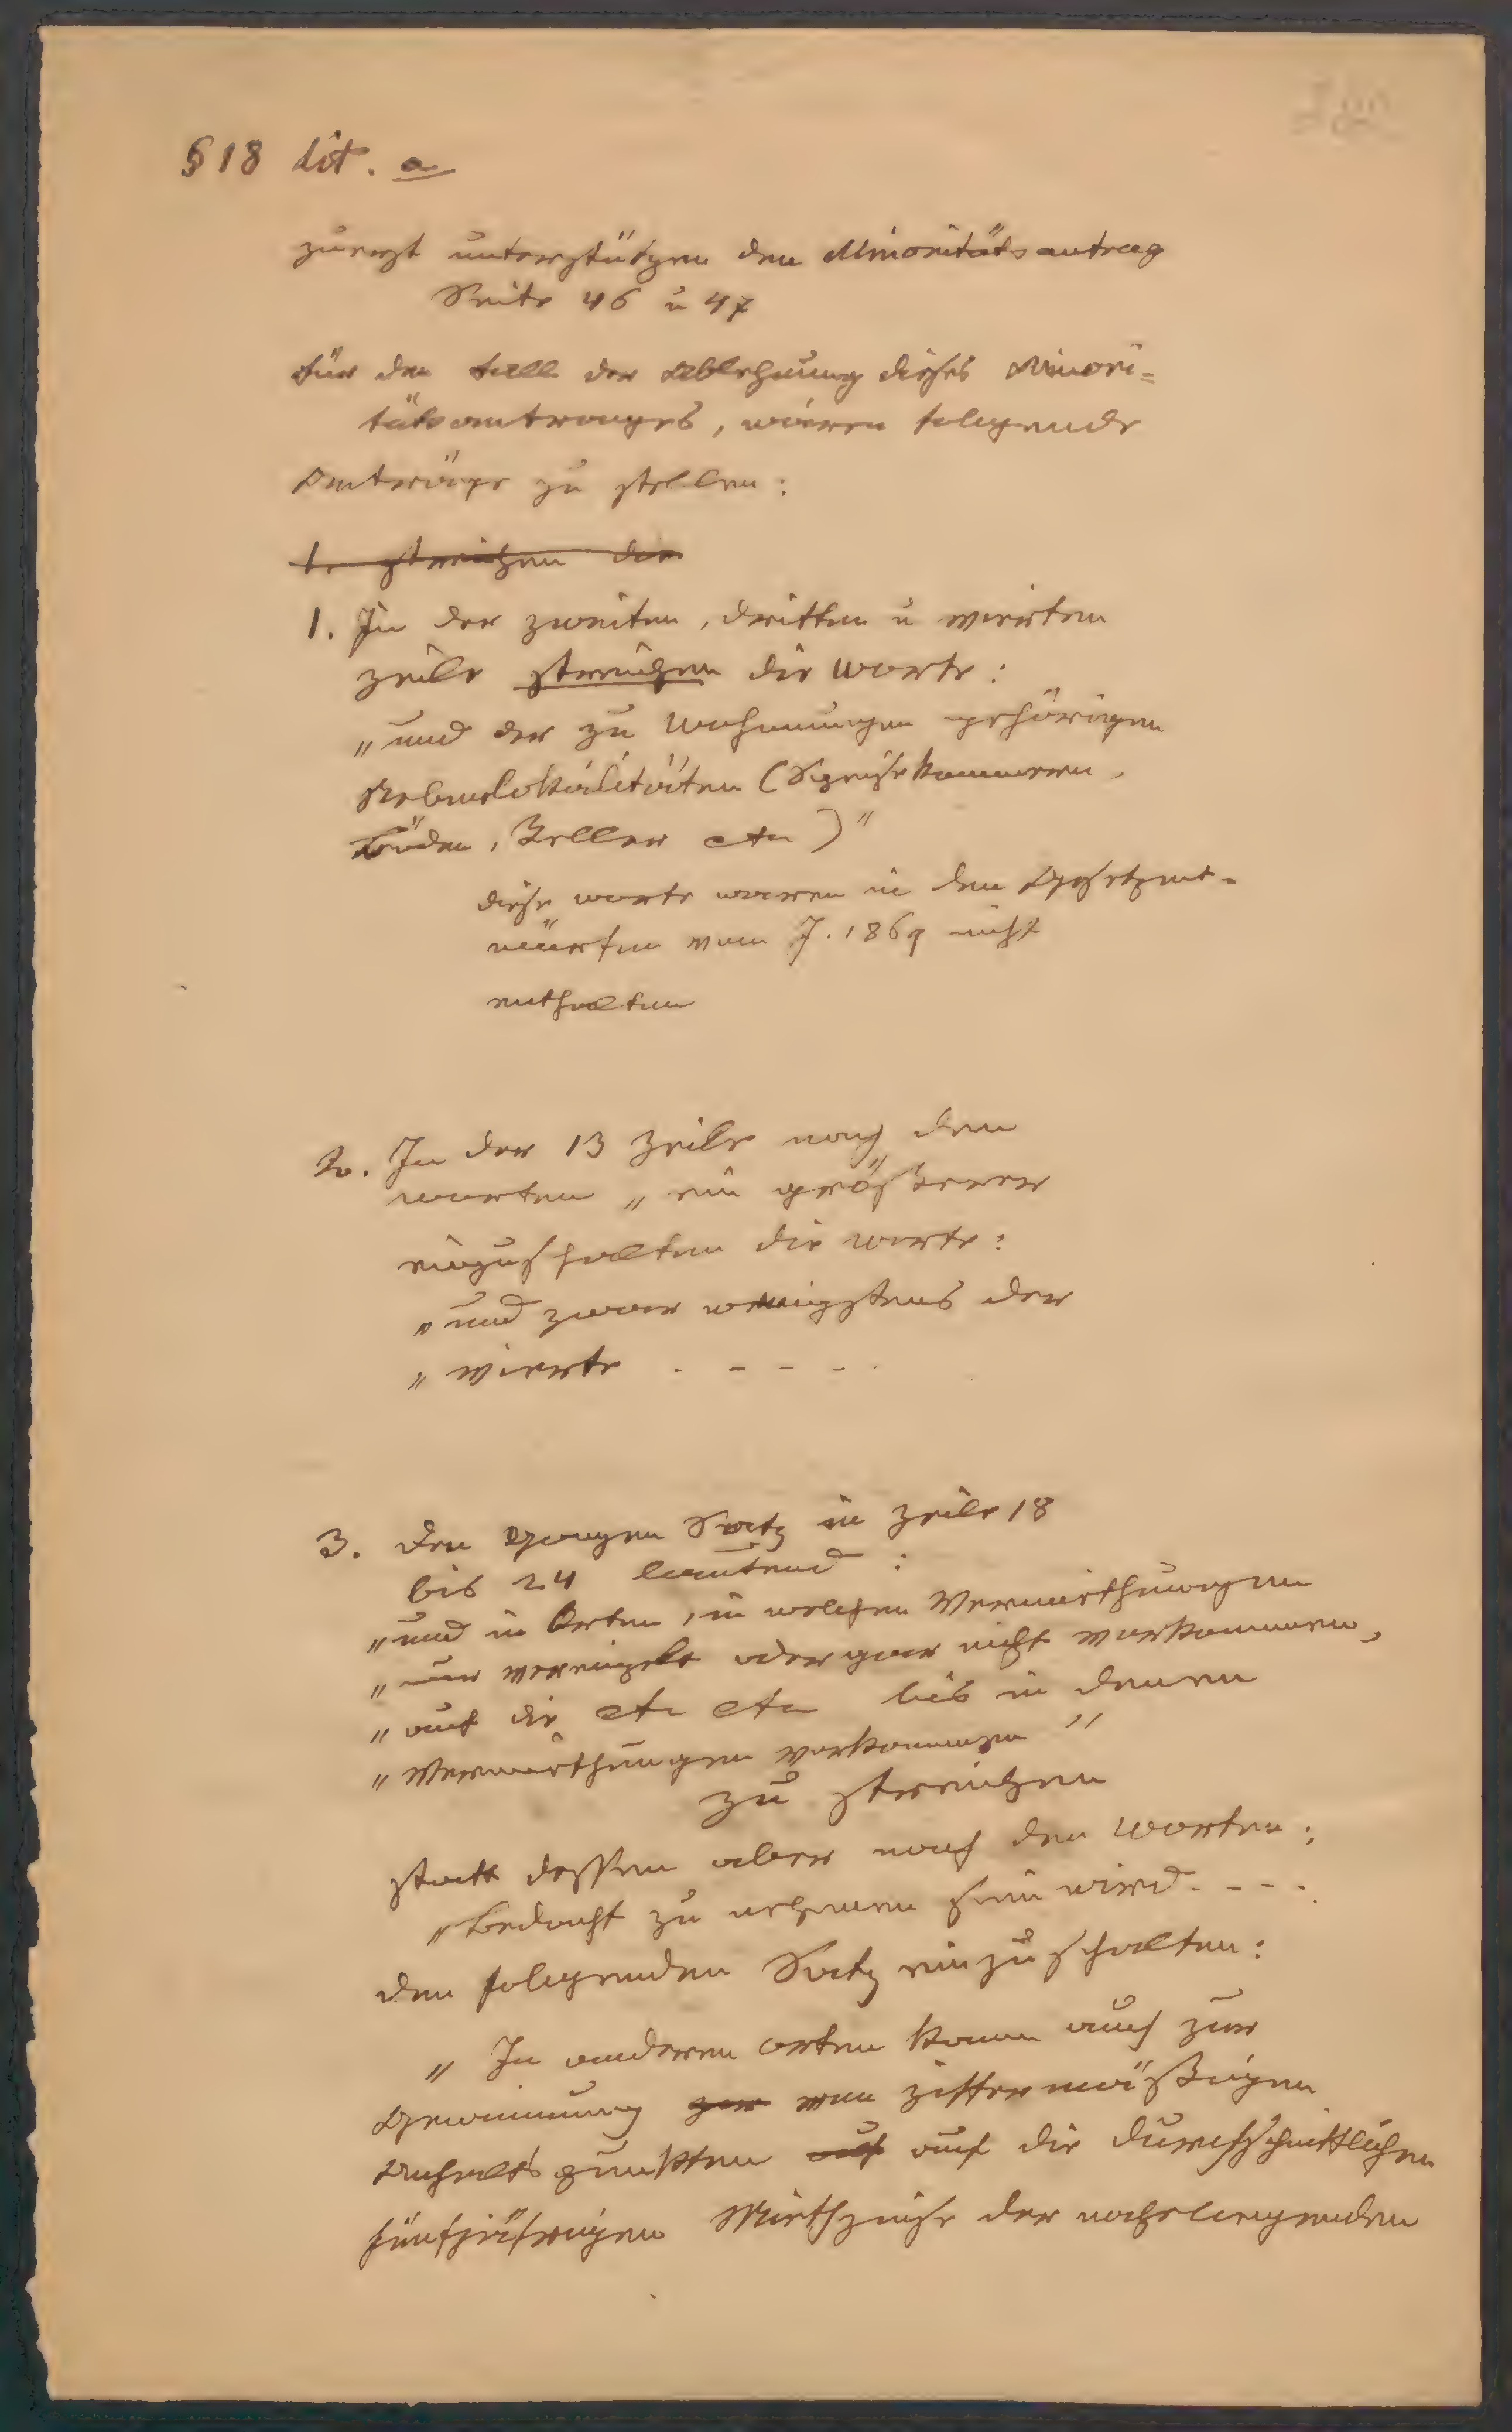 § 18 Lit. a
zuerst unterstützen den Minoritätsantrag
Seite 46 u 47
für den Fall der Ablehnung dieses Minori=
tätsantrages, wären folgende
Anträge zu stellen:
1. streichen der
1. In der zweiten, dritten u vierten
Zeile streichen die Worte:
„und der zu Wohnungen gehörigen
Nebenlokalitäten (Speisekammern,
Böden, Keller etc)"
diese Worte waren in den Gesetzent-
würfen vom J. 1869 nicht
enthalten
2. In der 13 Zeile nach den
Worten „ein größerer
einzuschalten die Worte:
„und zwar wenigstens der
„vierte . - - - .
3. den ganzen Satz in Zeile 18
bis 24 lautend:
„und in Orten, in welchen Vermiethungen
„nur vereinzelt oder gar nicht vorkommen,
„auf die etc etc bis in denen
„Vermiethungen vorkommen"
zu streichen
statt dessen aber nach den Worten:
„Bedacht zu nehmen sein wird - - - -
den folgenden Satz einzuschalten:
„In anderen Orten kann auch zur
Gewinnung zur von ziffermäßigen
Anhaltspunkten auf auf die durchschnittlichen
fünfjährigen Miethzinse der naheliegenden